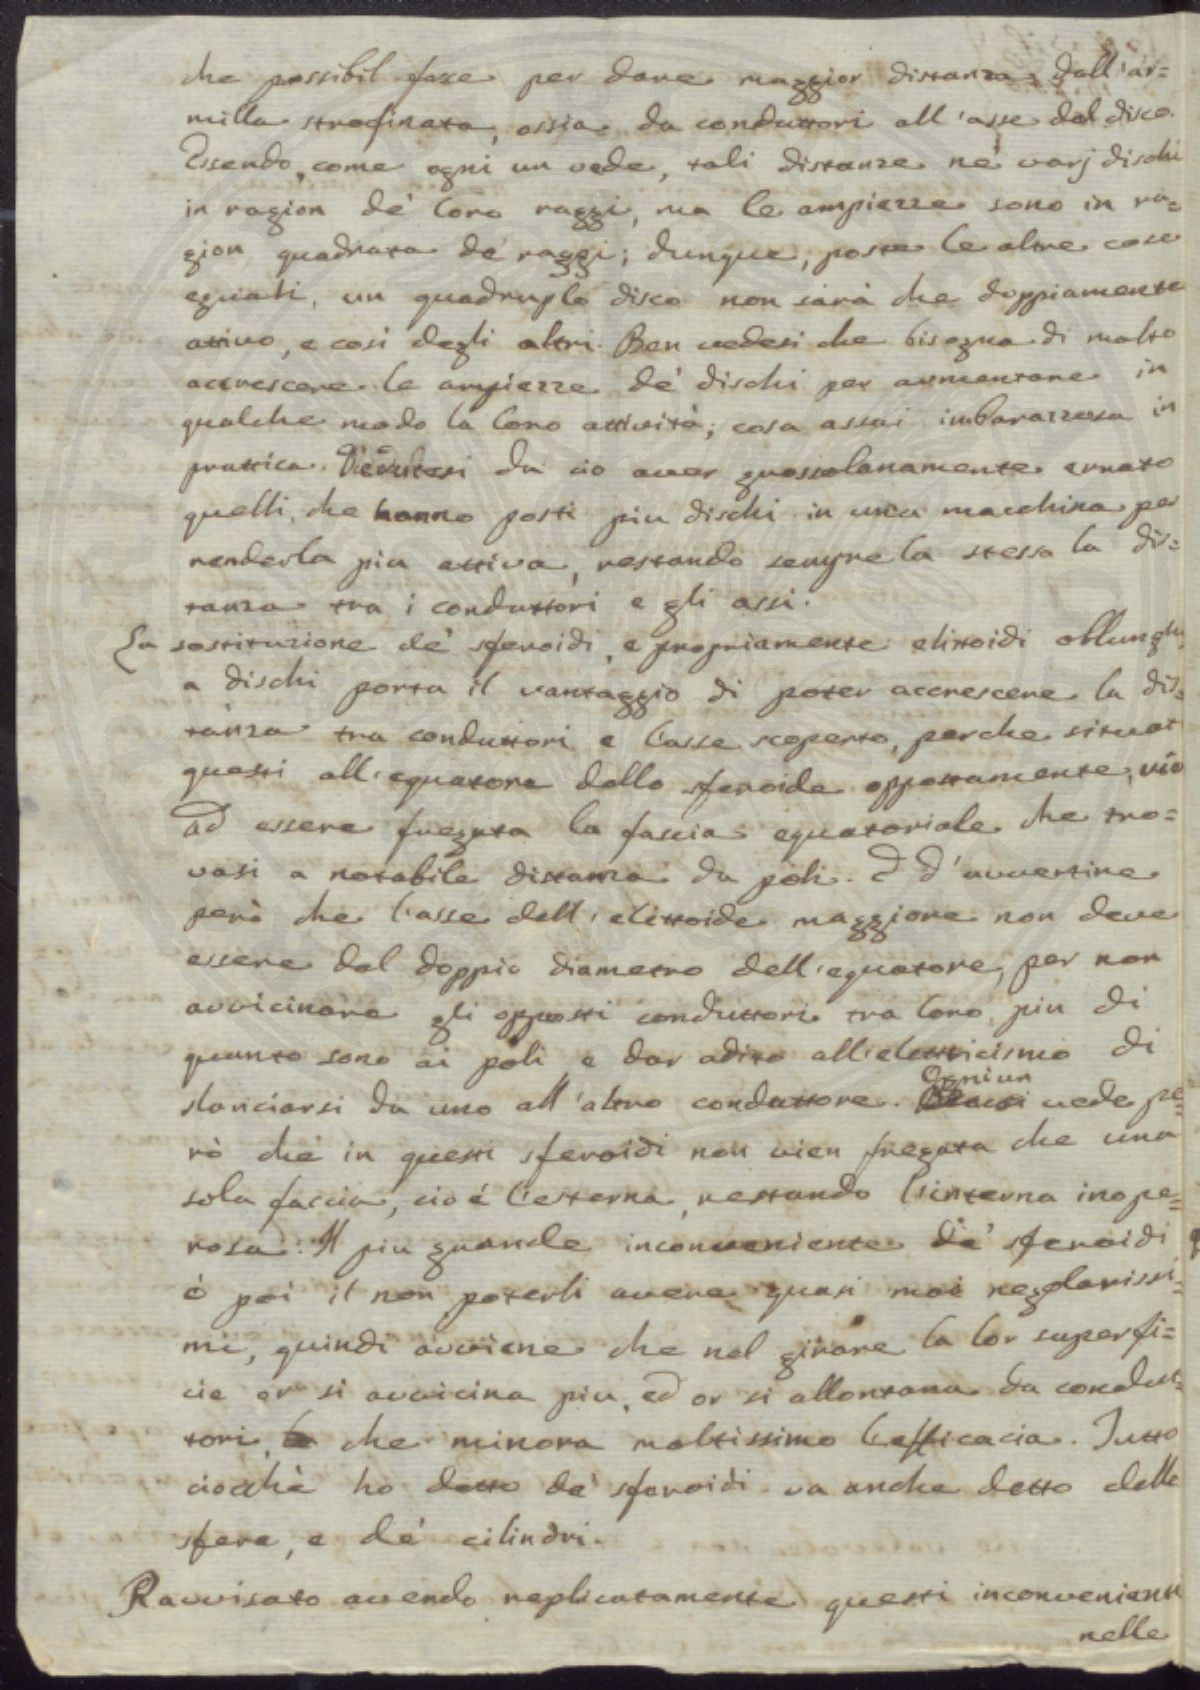 che possibil fosse per dare maggior distanza dall'ar=
milla strofinata, ossia da conduttori all'asse del disco.
Essendo, come ogni un vede, tali distanze ne' varj dischi
in ragion de' loro raggi, ma le ampiezze sono in ra=
gion quadrata de' raggi; dunque, poste le altre cose
eguali, un quadruplo disco non sarà che doppiamente
attivo, e così degli altri. Ben vedesi che bisogna di molto
accrescere le ampiezze de' dischi per aumentare in
qualche modo la loro attività; cosa assai imbarazzosa in
prattica. da cio aver grossolanamente errato
quelli, che hanno posti piu dischi in una macchina per
renderla piu attiva, restando sempre la stessa la dis=
tanza tra i conduttori e gli assi.
La sostituzione de' sferoidi, e propriamente elittoidi oblunghi
a dischi porta il vantaggio di poter accrescere la dis=
tanza tra conduttori e l'asse scoperto, perche situati
questi all'equatore dello sferoide oppostamente, vie
ad essere fregata la fascia equatoriale che tro=
vasi a notabile distanza da poli. È d'avvertire
però che l'asse dell'elittoide maggiore non deve
essere del doppio diametro dell'equatore, per non
avvicinare gli opposti conduttori tra loro piu di
quanto sono ai poli e dar adito all'elettricismo di
slanciarsi da uno all'altro conduttore. Ogniun vede pe=
rò che in questi sferoidi non vien fregata che una
sola faccia, cioè l'esterna, restando l'interna inope=
rosa. Il piu grande inconveniente de' sferoidi
è poi il non poterli avere quasi mai regolarissi=
mi, quindi avviene che nel girare la lor superfi=
cie or si avvicina piu, ed or si allontana da condut=
tori, che minora moltissimo l'efficacia. Tutto
ciocchè ho detto de' sferoidi va anche detto delle
sfere, e de' cilindri.
Ravvisato avendo replicatamente questi inconvenienti
nelle